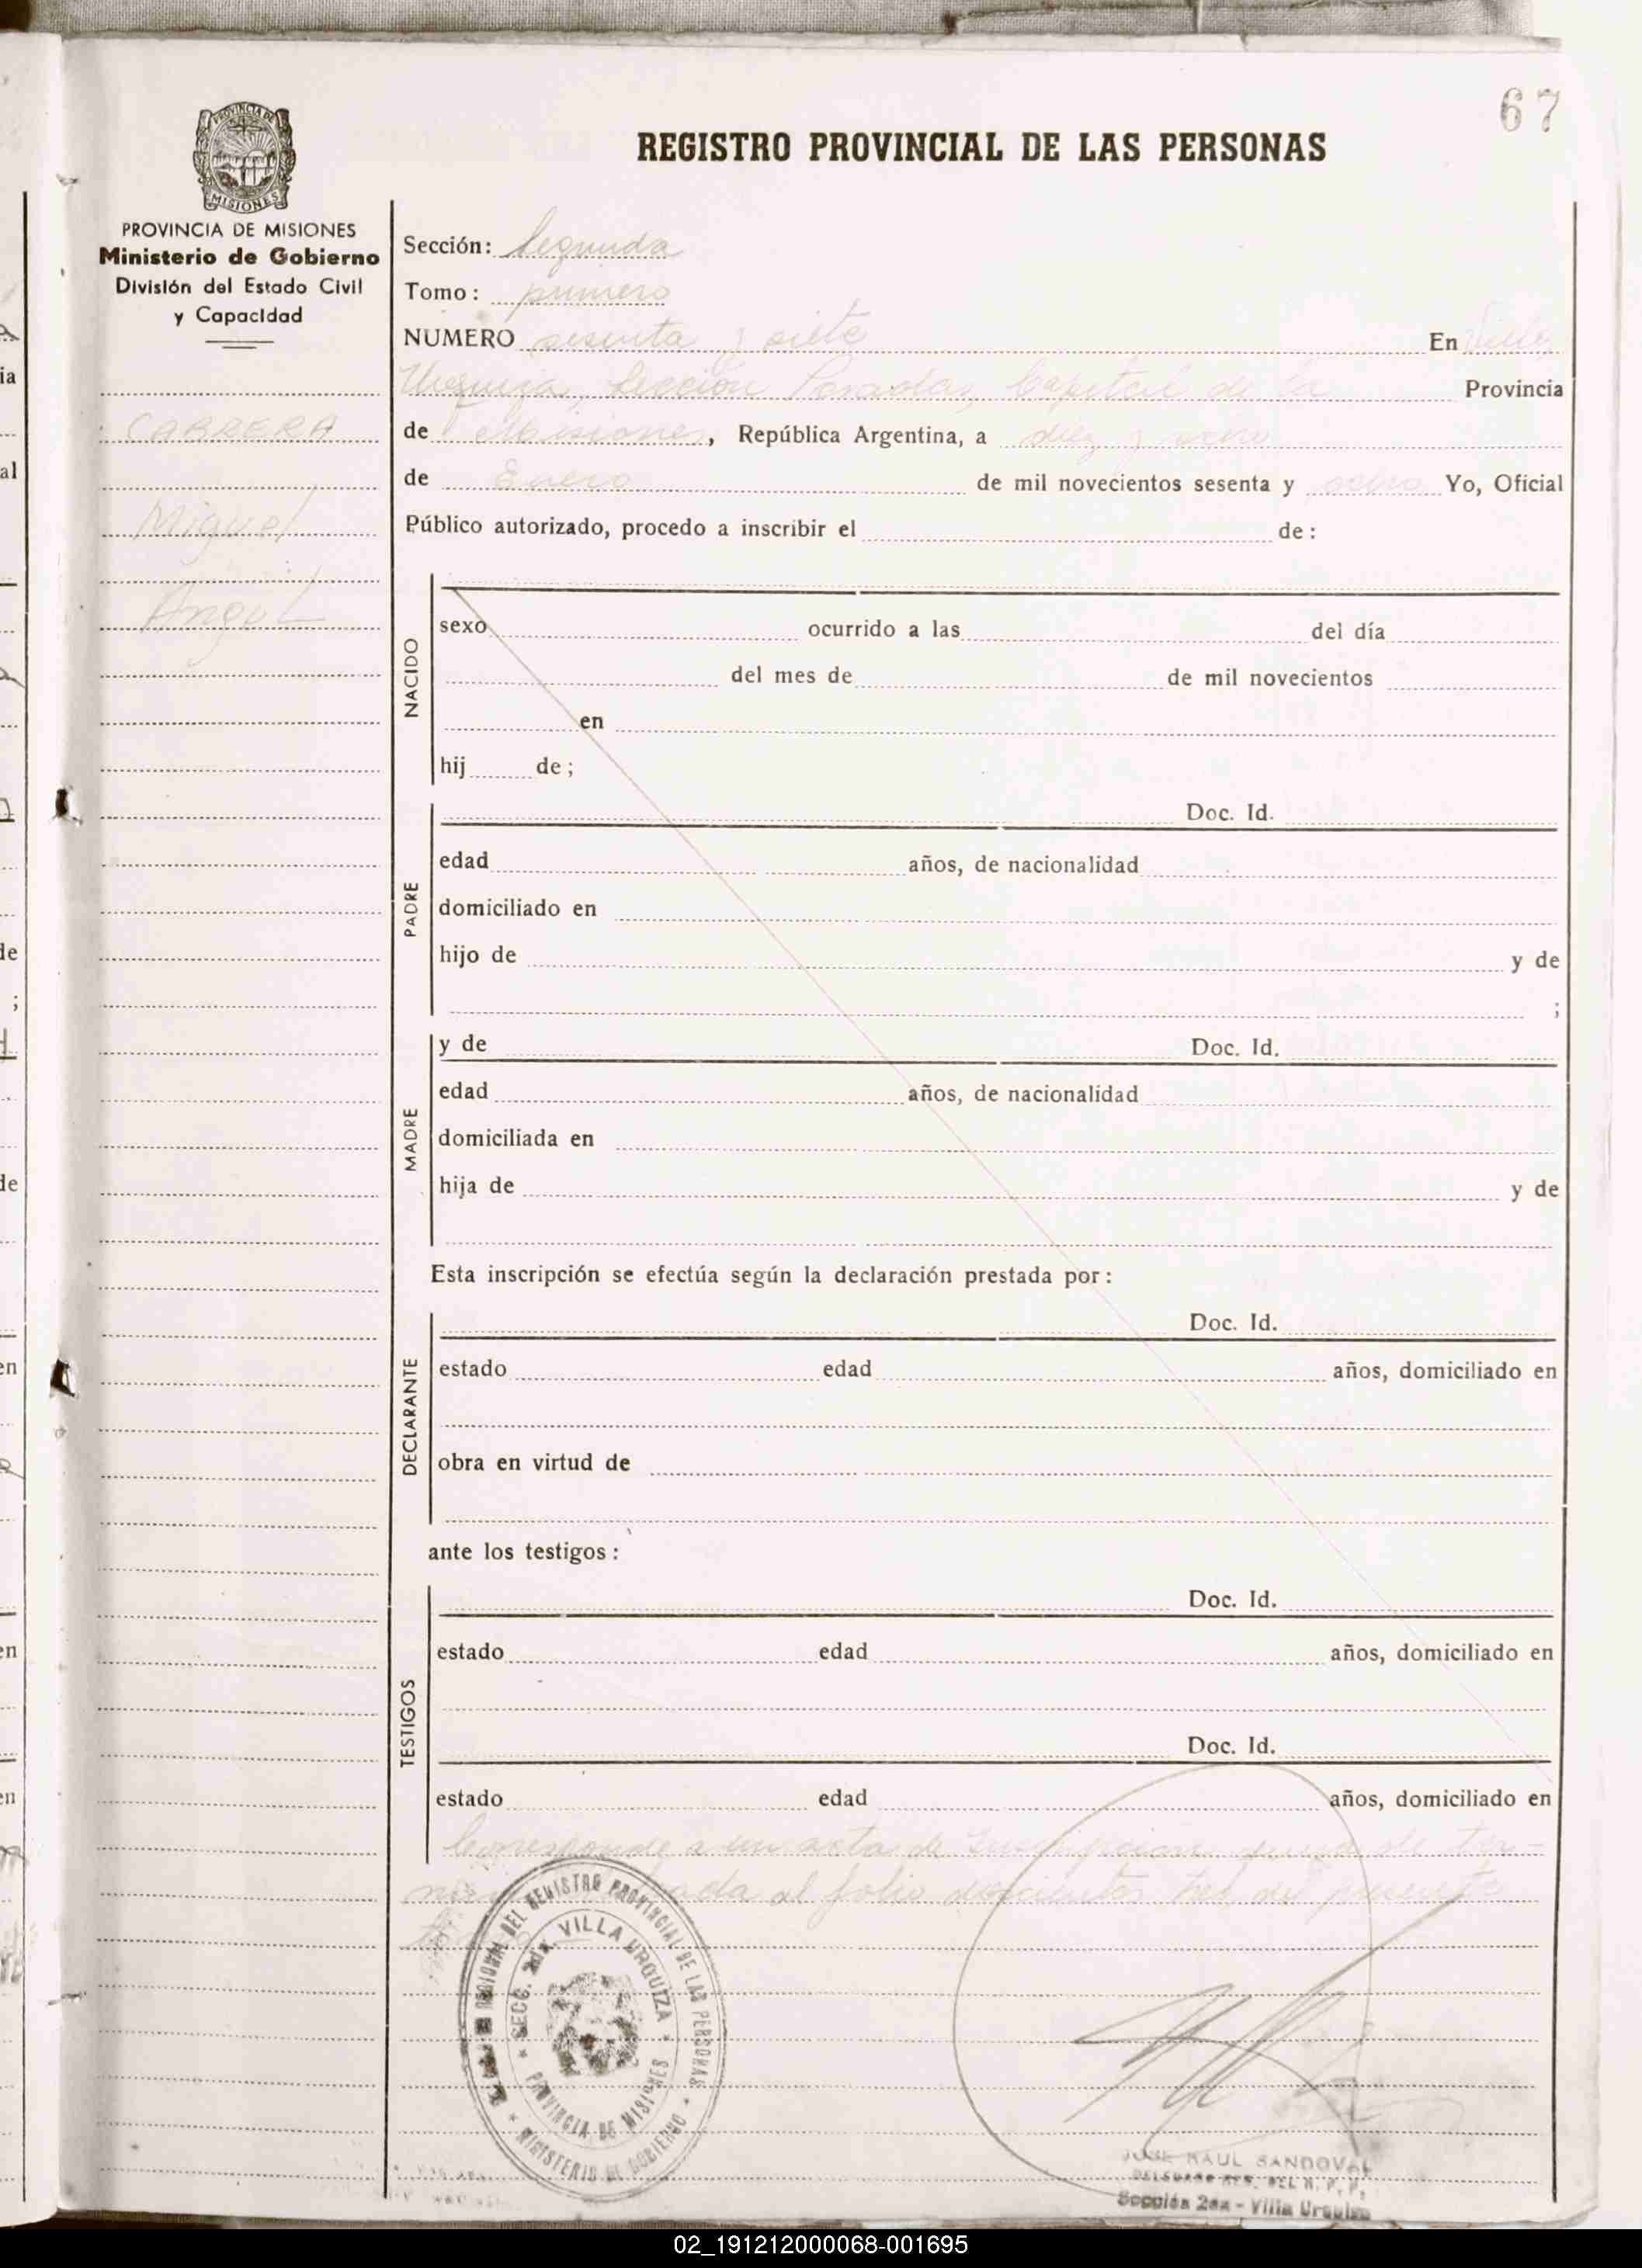 67
PROVINCIA DE
MISIONES
REGISTRO PROVINCIAL DE LAS PERSONAS
PROVINCIA DE MISIONES
Ministerio de Gobierno
División del Estado Civil
y Capacidad
CABRERA
Miguel
Angel
Sección: Segunda
Tomo: primero
NUMERO sesenta y siete En Villa
Urquiza, Sección Posadas, Capital de la Provincia
de Misiones, República Argentina, a diez y ocho
de Enero de mil novecientos sesenta y ocho Yo, Oficial
Público autorizado, procedo a inscribir el de:
NACIDO
sexo ocurrido a las del día
del mes de de mil novecientos
en
hij de;
PADRE
Doc. Id.
edad años, de nacionalidad
domiciliado en
hijo de y de
;
MADRE
y de Doc. Id.
edad años, de nacionalidad
domiciliada en
hija de y de
Esta inscripción se efectúa según la declaración prestada por:
DECLARANTE
Doc. Id.
estado edad años, domiciliado en
obra en virtud de
ante los testigos:
TESTIGOS
Doc. Id.
estado edad años, domiciliado en
Doc. Id.
estado edad años, domiciliado en
Corresponde a un acta de Inscripción fuera de tér-
mino al folio doscientos tres del presente
REGIONAL DEL REGISTRO PROVINCIAL DE LAS PERSONAS
* MINISTERIO DE GOBIERNO *
* SECC. 2da. VILLA URQUIZA *
PROVINCIA DE MISIONES
JOSE RAUL SANDOVAL
DELEGADO REG. DEL R. P. P.
Sección 2da - Villa Urquiza
02_191212000068-001695